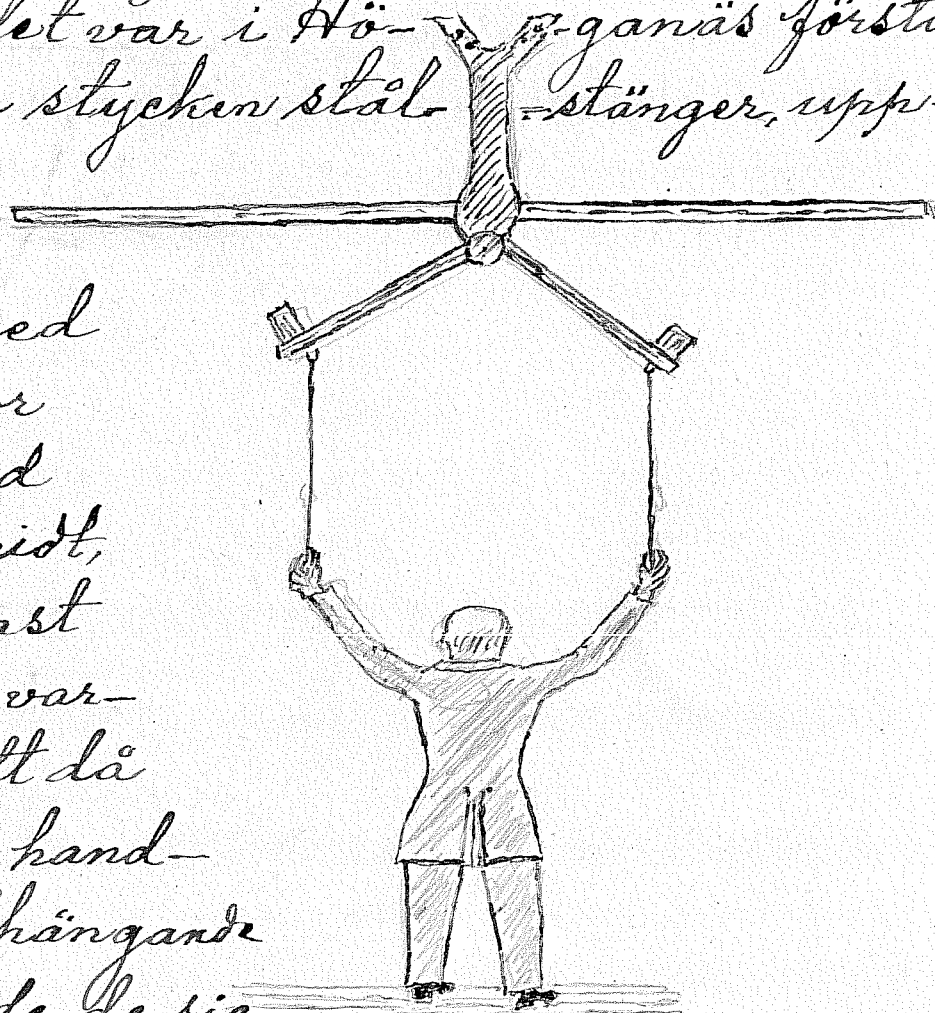 det var i Hö- -ganäs första
stycken stål- =stänger, upp-
ed
or
d
idt,
ast
var-
tt då
hand-
hängande
de de sig